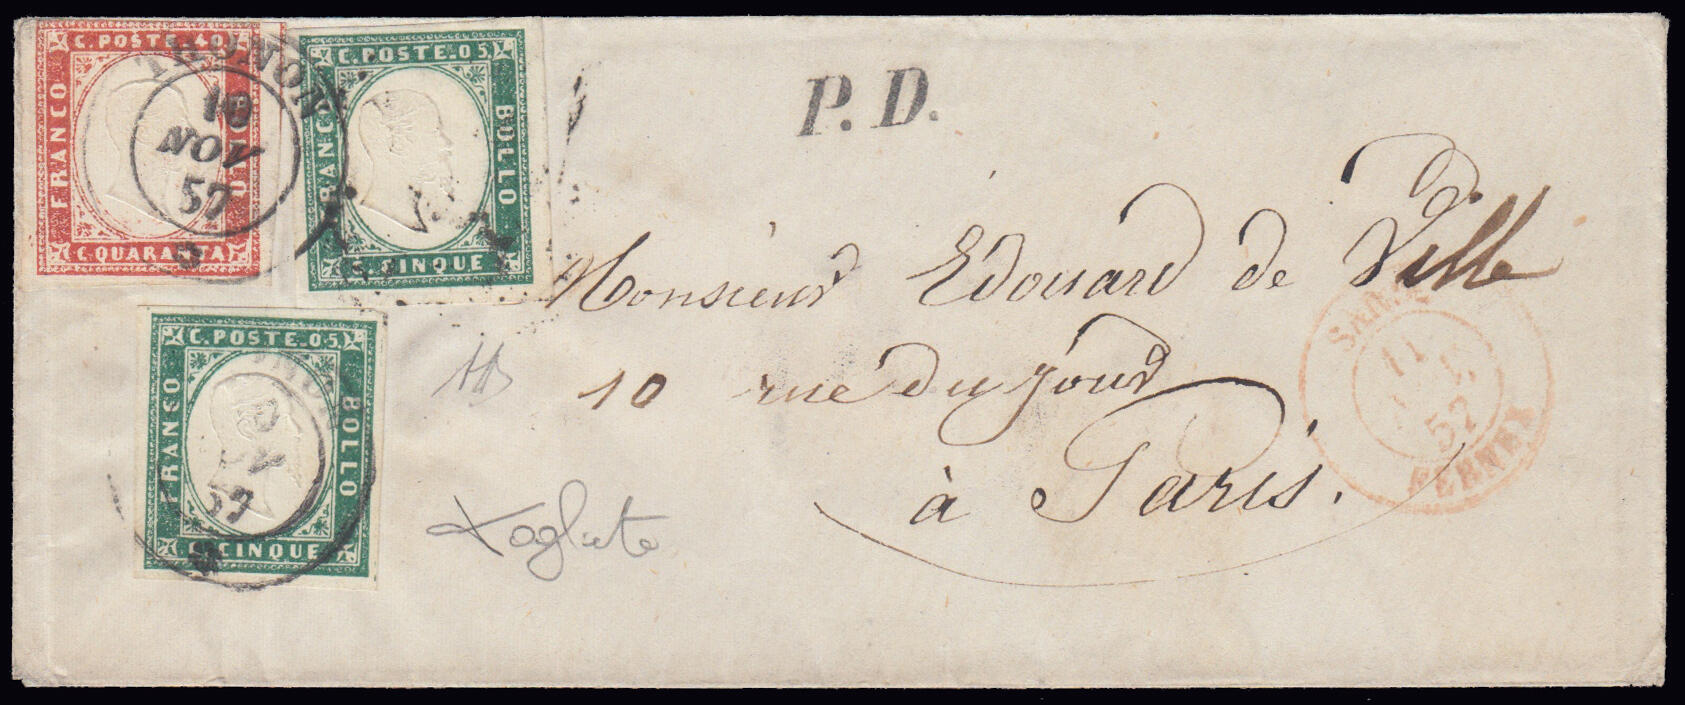 C. POSTE. 40
FRANCO
BOLLO
C. QUARANTA
THONON
10
NOV
57
C. POSTE. 05
FRANCO
BOLLO
C. CINQUE
P. D.
C. POSTE. 05
FRANSO
BOLLO
C. CINQUE
57
Monsieur Edouard de Ville
10 rue du jour
à Paris.
11
57
FERNEX